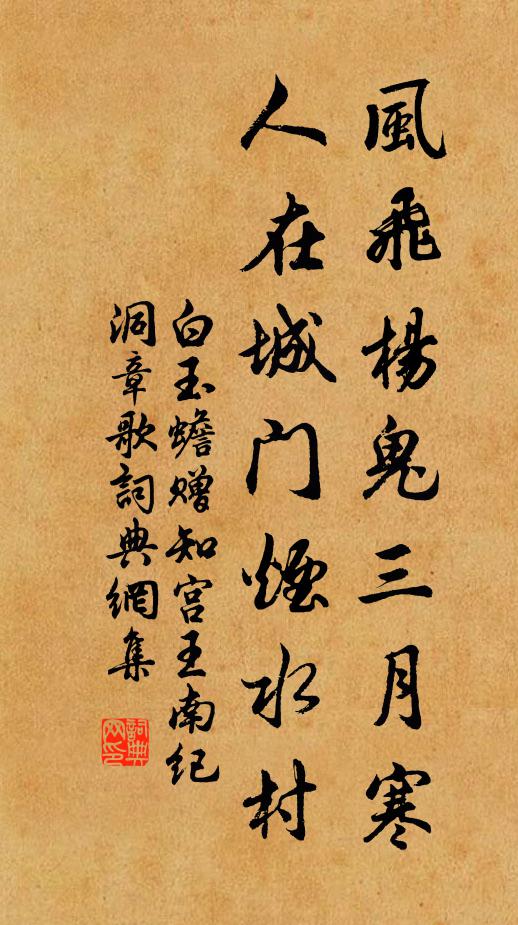 風飛楊鬼三月寒
人在城门煙水村
白玉蟾赠知宫王南纪
洞章歌詞典網集
詞典
网印